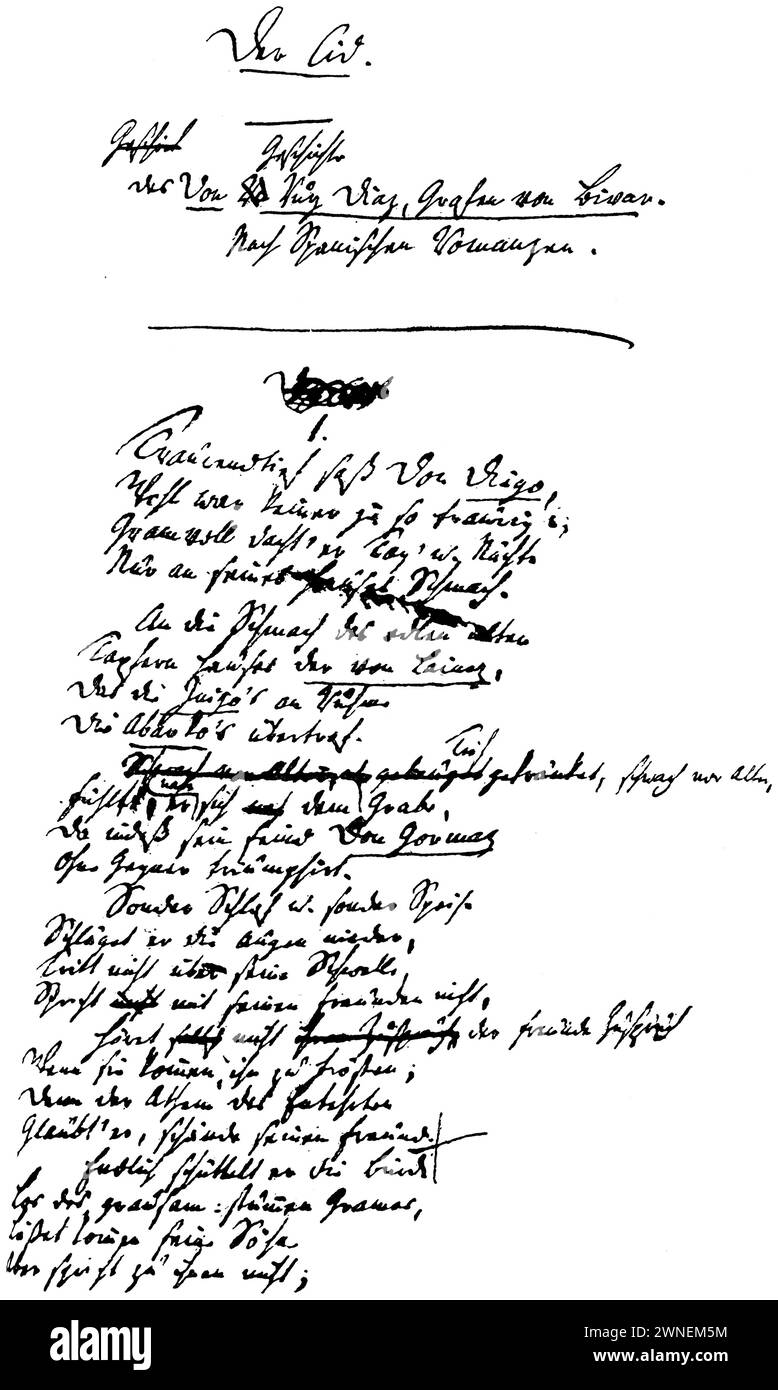 Der Cid.
Geschicht Geschichte
des Don Ruy Diaz, Grafen von Bivar.
Nach Spanischen Romanzen.
1.
Traurendtief saß Don Diego,
Wohl war keiner je so traurig;
Gramvoll dacht' er Tag' u. Nächte
Nur an seines Hauses Schmach.
An die Schmach des edlen alten
Tapfern Hauses der von Lainez,
Das die Inigo's an Ruhme
Die Abarko's übertraf.
Tief
Schwach vor Alter, gebeuget gekränket, schwach vor Alter,
nahe
Fühlt er sich dem Grabe,
Da indeß sein Feind Don Gormaz
Ohne Gegner triumphirt.
Sonder Schlaf u. sonder Speise
Schläget er die Augen nieder,
Tritt nicht über seine Schwelle,
Spricht nicht mit seinen Freunden nicht,
Höret nicht der Freunde Zuspruch
Wenn sie kommen, ihn zu trösten;
Denn der Athem des Entehrten
Glaubt' er, schände seinen Freund.
Endlich schüttelt er die Bürde
Los des grausam-stummen Grames,
Läßet kommen seine Söhne
Aber spricht zu ihnen nicht;
alamy
Image ID: 2WNEM5M
www.alamy.com